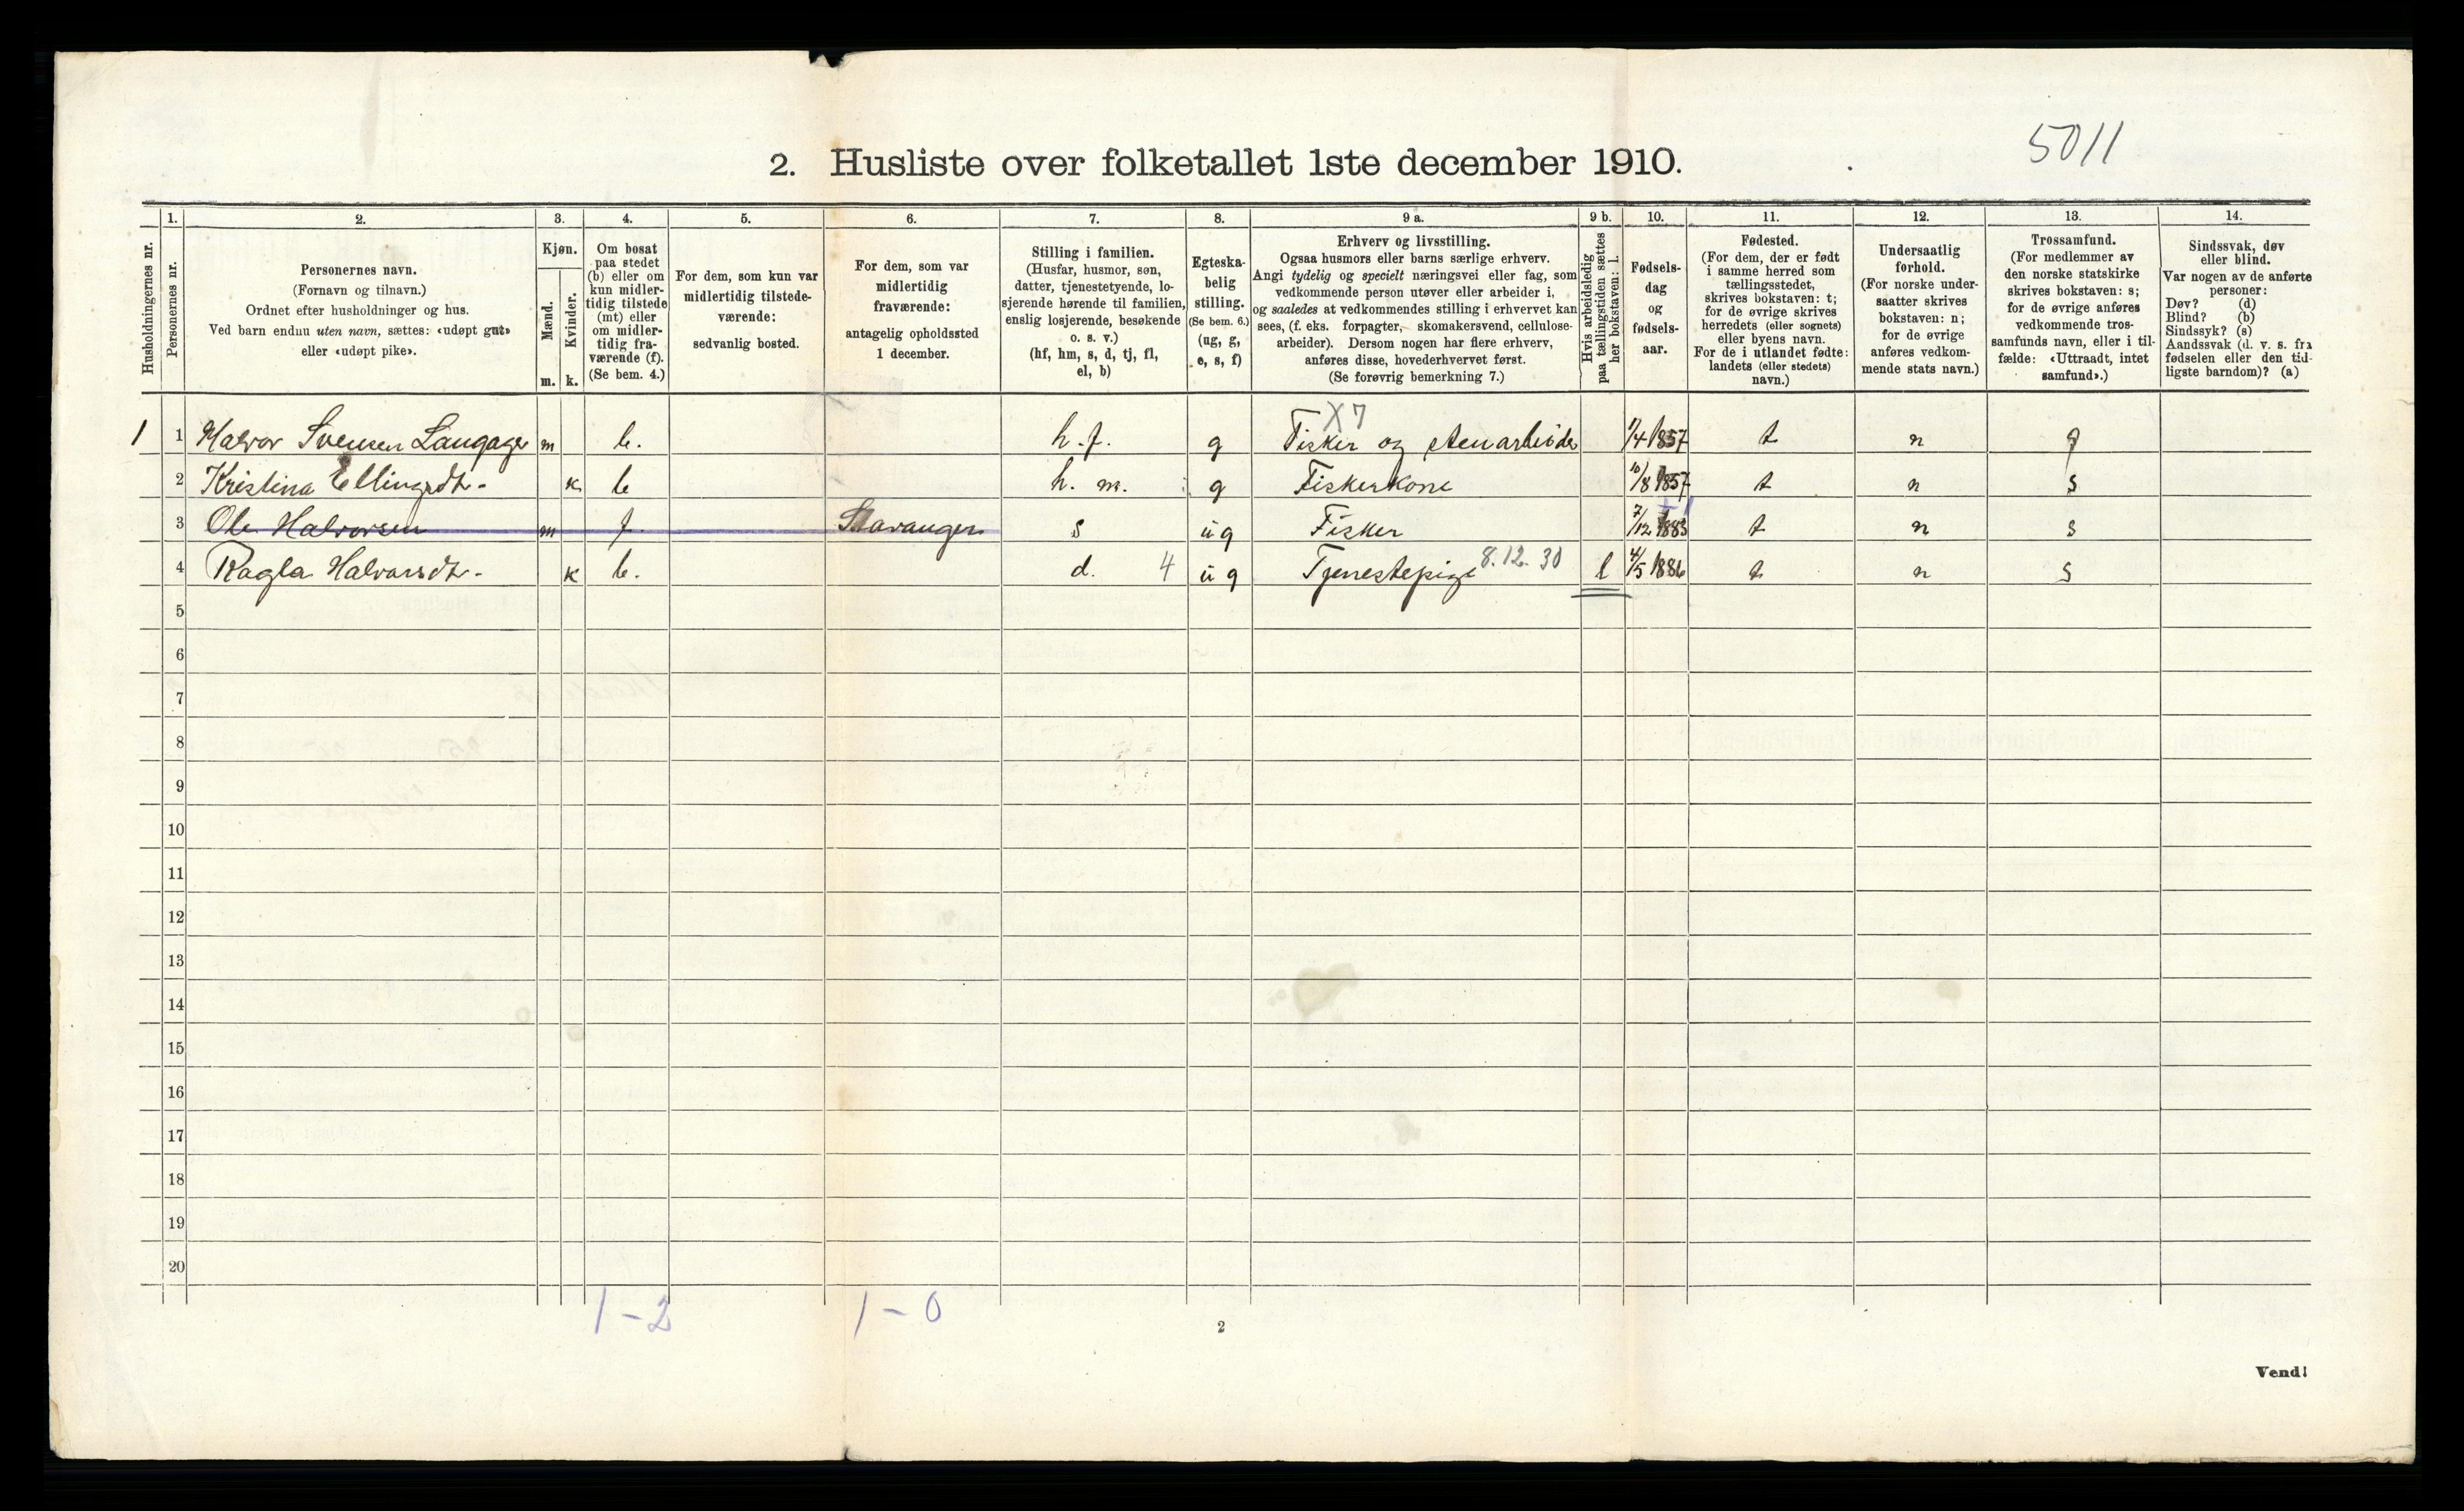 2. Husliste over folketallet 1ste december 1910.
5011
Husholdningernes nr.
1.
Personernes nr.
2.
Personernes navn.
(Fornavn og tilnavn.)
Ordnet efter husholdninger og hus.
Ved barn endnu uten navn, sættes: «udøpt gut»
eller «udøpt pike».
3.
Kjøn.
Mænd.
m.
Kvinder.
k.
4.
Om bosat
paa stedet
(b) eller om
kun midler-
tidig tilstede
(mt) eller
om midler-
tidig fra-
værende (f).
(Se bem. 4.)
5.
For dem, som kun var
midlertidig tilstede-
værende:
sedvanlig bosted.
6.
For dem, som var
midlertidig
fraværende:
antagelig opholdssted
1 december.
7.
Stilling i familien.
(Husfar, husmor, søn,
datter, tjenestetyende, lo-
sjerende hørende til familien,
enslig losjerende, besøkende
o. s. v.)
(hf, hm, s, d, tj, fl,
el, b)
8.
Egteska-
belig
stilling.
(Se bem. 6.)
(ug, g,
e, s, f)
9 a.
Erhverv og livsstilling.
Ogsaa husmors eller barns særlige erhverv.
Angi tydelig og specielt næringsvei eller fag, som
vedkommende person utøver eller arbeider i,
og saaledes at vedkommendes stilling i erhvervet kan
sees, (f. eks. forpagter, skomakersvend, cellulose-
arbeider). Dersom nogen har flere erhverv,
anføres disse, hovederhvervet først.
(Se forøvrig bemerkning 7.)
9 b.
Hvis arbeidsledig
paa tællingstiden sættes
her bokstaven: l.
10.
Fødsels-
dag
og
fødsels-
aar.
11.
Fødested.
(For dem, der er født
i samme herred som
tællingsstedet,
skrives bokstaven: t;
for de øvrige skrives
herredets (eller sognets)
eller byens navn.
For de i utlandet fødte:
landets (eller stedets)
navn.)
12.
Undersaatlig
forhold.
(For norske under-
saatter skrives
bokstaven: n;
for de øvrige
anføres vedkom-
mende stats navn.)
13.
Trossamfund.
(For medlemmer av
den norske statskirke
skrives bokstaven: s;
for de øvrige anføres
vedkommende tros-
samfunds navn, eller i til-
fælde: «Uttraadt, intet
samfund».)
14.
Sindssvak, døv
eller blind.
Var nogen av de anførte
personer:
Døv? (d)
Blind? (b)
Sindssyk? (s)
Aandssvak (d. v. s. fra
fødselen eller den tid-
ligste barndom)? (a)
X7
1 1 Halvor Svensen Langager m b. h.f. g Fisker og stenarbeider 1/4 1857 t n
2 Kristina Ellingsdtr. k b h. m. g Fiskerkone 10/8 1857 t n s
3 Ole Halvorsen m f Stavanger s ug Fisker 7/12 1883 t n s
4 Ragla Halvorsdtr. k b. d. 4 ug Tjenestepige 8.12.30 l 4/5 1886 t n s
5
6
7
8
9
10
11
12
13
14
15
16
17
18
19
20
1-2 1-0
2
Vend!